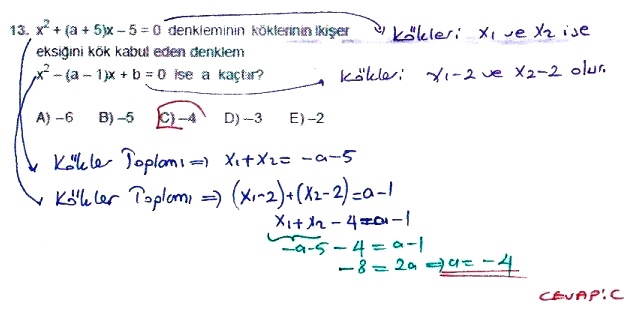 13. x² + (a + 5)x − 5 = 0 denkleminin köklerinin ikişer
eksiğini kök kabul eden denklem
x² − (a − 1)x + b = 0 ise a kaçtır?
Kökleri: x₁ ve x₂ ise
Kökleri: x₁−2 ve x₂−2 olur.
A) −6 B) −5 C) −4 D) −3 E) −2
Kökler Toplamı ⇒ x₁+x₂ = −a−5
Kökler Toplamı ⇒ (x₁−2)+(x₂−2)=a−1
x₁+x₂ −4=a−1
−a−5 −4 = a−1
−8 = 2a ⇒ a = −4
CEVAP: C